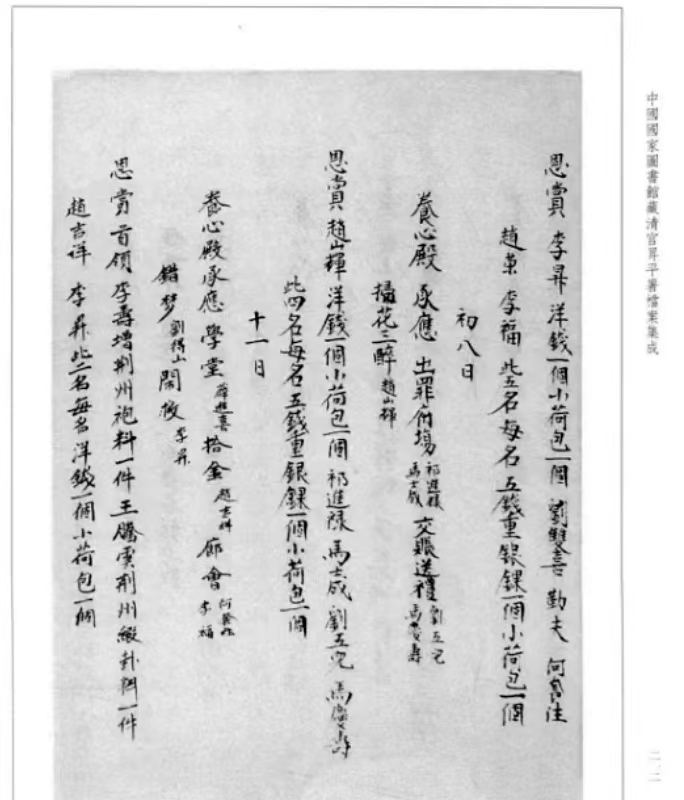 恩賞李昇洋錢一個小荷包一個劉雙喜勤夫何慶注
趙榮李福此五名每名五錢重銀錁一個小荷包一個
初八日
養心殿承應出罪府場祁進祿馬士成交賬送禮劉五兒馬慶壽
搧花三醉趙山輝
恩賞趙山輝洋錢一個小荷包一個祁進祿馬士成劉五兒馬慶壽
此四名每名五錢重銀錁一個小荷包一個
十一日
養心殿承應學堂薛進喜拾金趙吉祥廊會何慶注李福
錯夢劉得山鬧校李昇
恩賞首領李壽增荊州袍料一件王騰雲荊州緞卦料一件
趙吉祥李昇此二名每名洋錢一個小荷包一個
中國國家圖書館藏清宮昇平署檔案集成